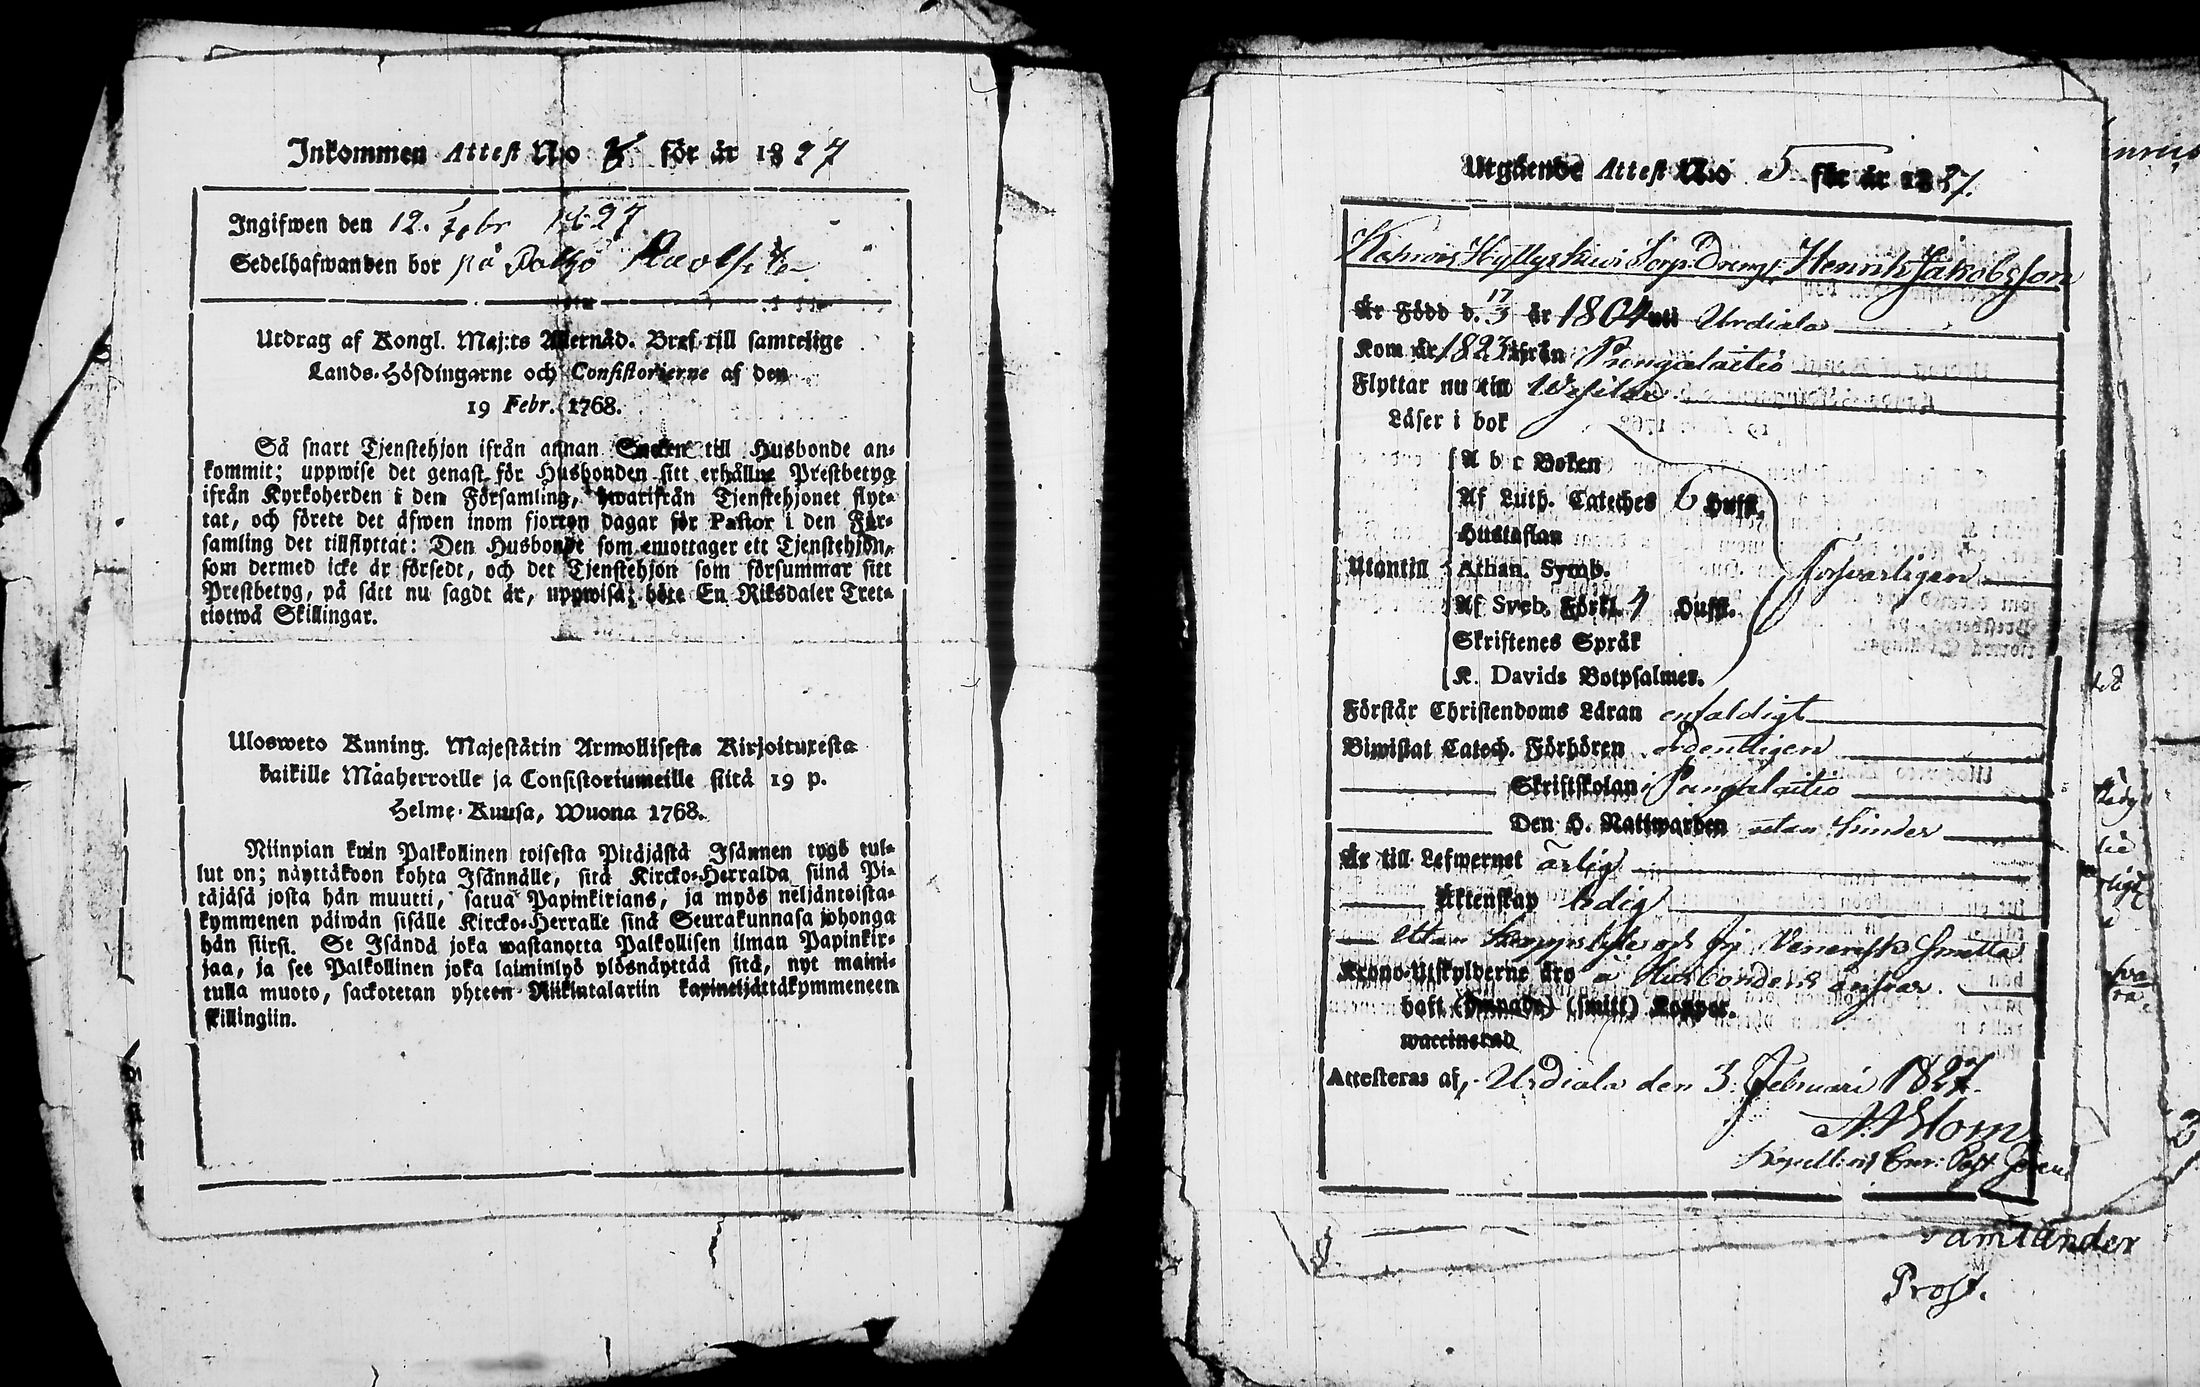 Inkommen Attest No 8 för år 1827
Ingifwen den 12. Febr 1827
Sedelhafwanden bor på
Utdrag af Kongl. Maj:ts Allernåd. Bref till samtelige
Lands-Höfdingarne och Consistorierne af den
19 Febr. 1768.
Så snart Tjenstehjon ifrån annan Socken till Husbonde an-
kommit; uppwise det genast för Husbonden sitt erhållne Prestbetyg
ifrån Kyrkoherden i den Församling, hwarifrån Tjenstehjonet flyt-
tat, och förete det äfwen inom fjorton dagar för Pastor i den För-
samling det tillflyttat: Den Husbonde som emottager ett Tjenstehjon,
som dermed icke är försedt, och det Tjenstehjon som försummar sitt
Prestbetyg, på sätt nu sagdt är, uppwisa; böte En Riksdaler Tret-
tiotwå Skillingar.
Ulosweto Kuning. Majestätin Armollisesta Kirjoituxesta
kaikille Maaherroille ja Consistoriumeille siitä 19 p.
Helme-Kuusa, Wuona 1768.
Niinpian kuin Palkollinen toisesta Pitäjästä Isännen tygö tul-
lut on; näyttäkoon kohta Isännälle, sitä Kircko-Herralda siinä Pi-
täjäsä josta hän muutti, satua Papinkirians, ja myös neljäntoista-
kymmenen päiwän sisälle Kircko-Herralle sinä Seurakunnasa johonga
hän siirsi. Se Isändä joka wastanotta Palkollisen ilman Papinkir-
jaa, ja see Palkollinen joka laiminlyö ylösnäyttää sitä, nyt maini-
tulla muoto, sackotetan yhteen Riikintalariin kaxineljättäkymmeneen
skillingiin.
Utgående Attest No 5 för år 1827.
Hyllyskiwi Torp. Dreng. Henrik Jakobsson
Är Född d. 17/3 år 1804 uti Urdiala
Kom år 1823 ifrån Pungalaitio
Flyttar nu till Wesilax
Läser i bok
A b c Boken
Af Luth. Cateches 6 Hufst.
Hustaflan
Utantill Athan. Symb. försvarligen
Af Sveb. Förkl. 4 Hufst.
Skriftenes Språk
K. Davids Botpsalmer.
Förstår Christendoms Läran enfaldigt
Biwistat Catech. Förhören ordentligen
Skriftskolan i Pungalaitio
Den H. Nattwarden utan hinder
Är till Lefwernet ärlig
Äktenskap ledig
Utan och Venerisk Smitta
Krono-Utskylderne äro å Husbondens ansvar.
haft (hemgade) (smitt) Koppor.
waccinerad
Attesteras af, Urdiala den 3. Februari 1827.
A. Blom
Prost.